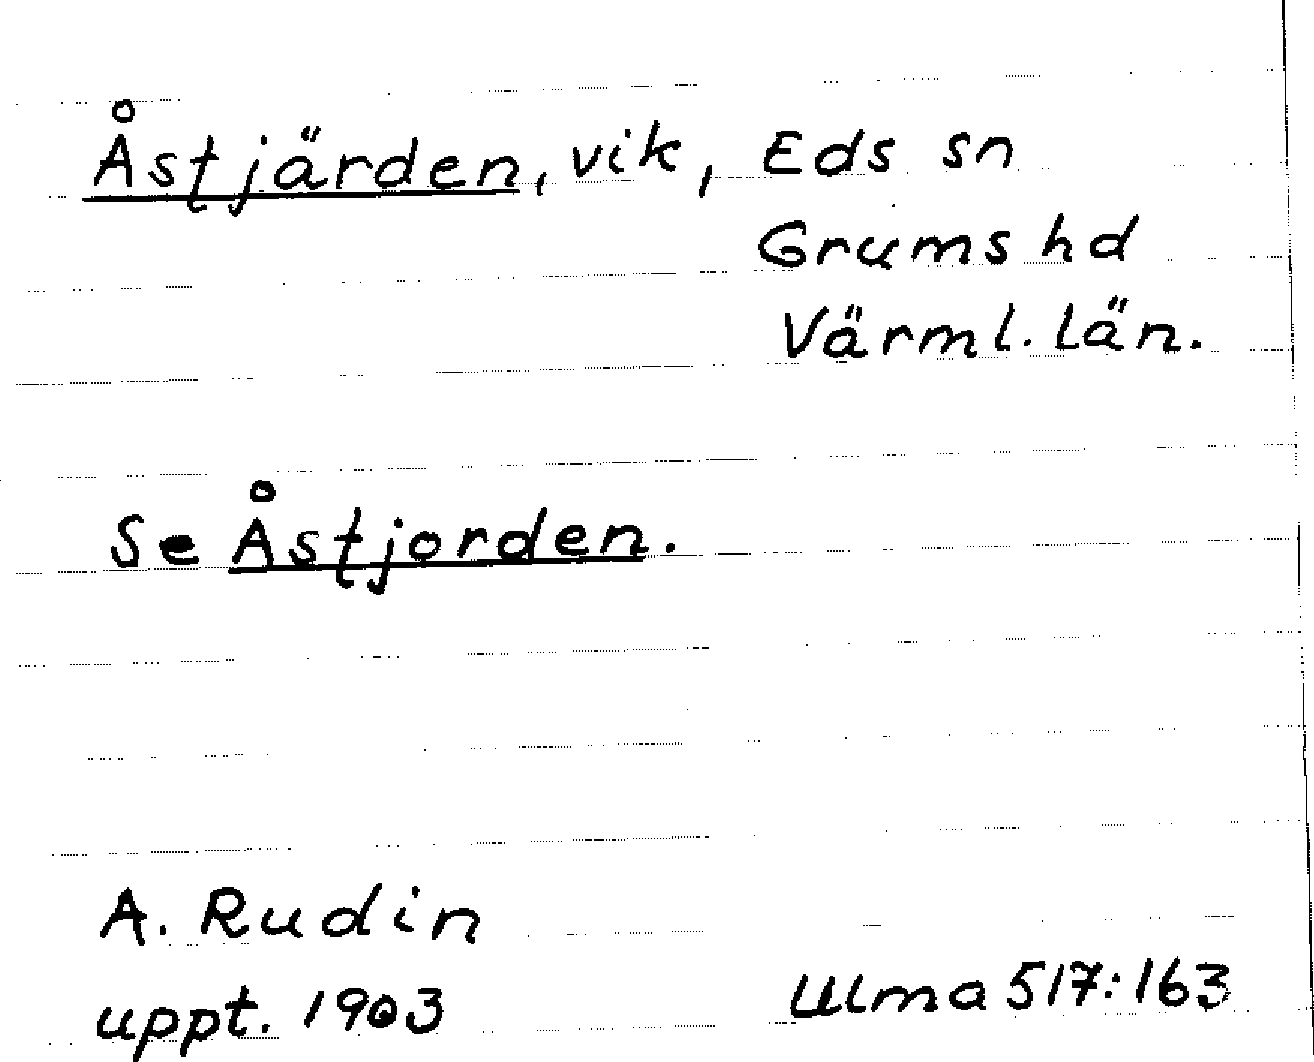 Åstjärden, vik, Eds sn
Grums hd
Värml. län.
Se Åstjorden.
A. Rudin
uppt. 1903
Ulma 517:163